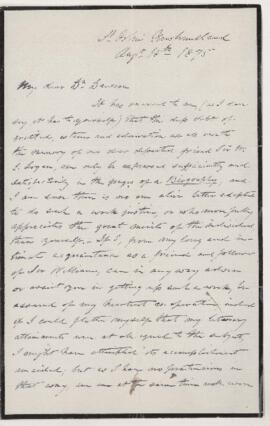 St John's Newfoundland
Augt 18th 1875
My dear Dr. Dawson
It has occurred to me, (as I dare
say it has to yourself) that the deep debt of
gratitude, esteem and admiration we all owe to
the memory of our dear departed friend Sir W.
E. Logan, can only be expressed sufficiently and
satisfactorily in the pages of a Biography, and
I am sure there is no one alive better adapted
to do such a work justice, or who more fully
appreciates the great merits of the individual
than yourself. If I, from my long and in-
timate acquaintance as a friend and follower
of Sir William, can in any way advise
or assist you in getting up such a work, be
assured of my heartiest co-operation; indeed
if I could flatter myself that my literary
attainments were at all equal to the subject,
I might have attempted its accomplishment
unaided, but as I have no pretensions in
that way and am at the same time